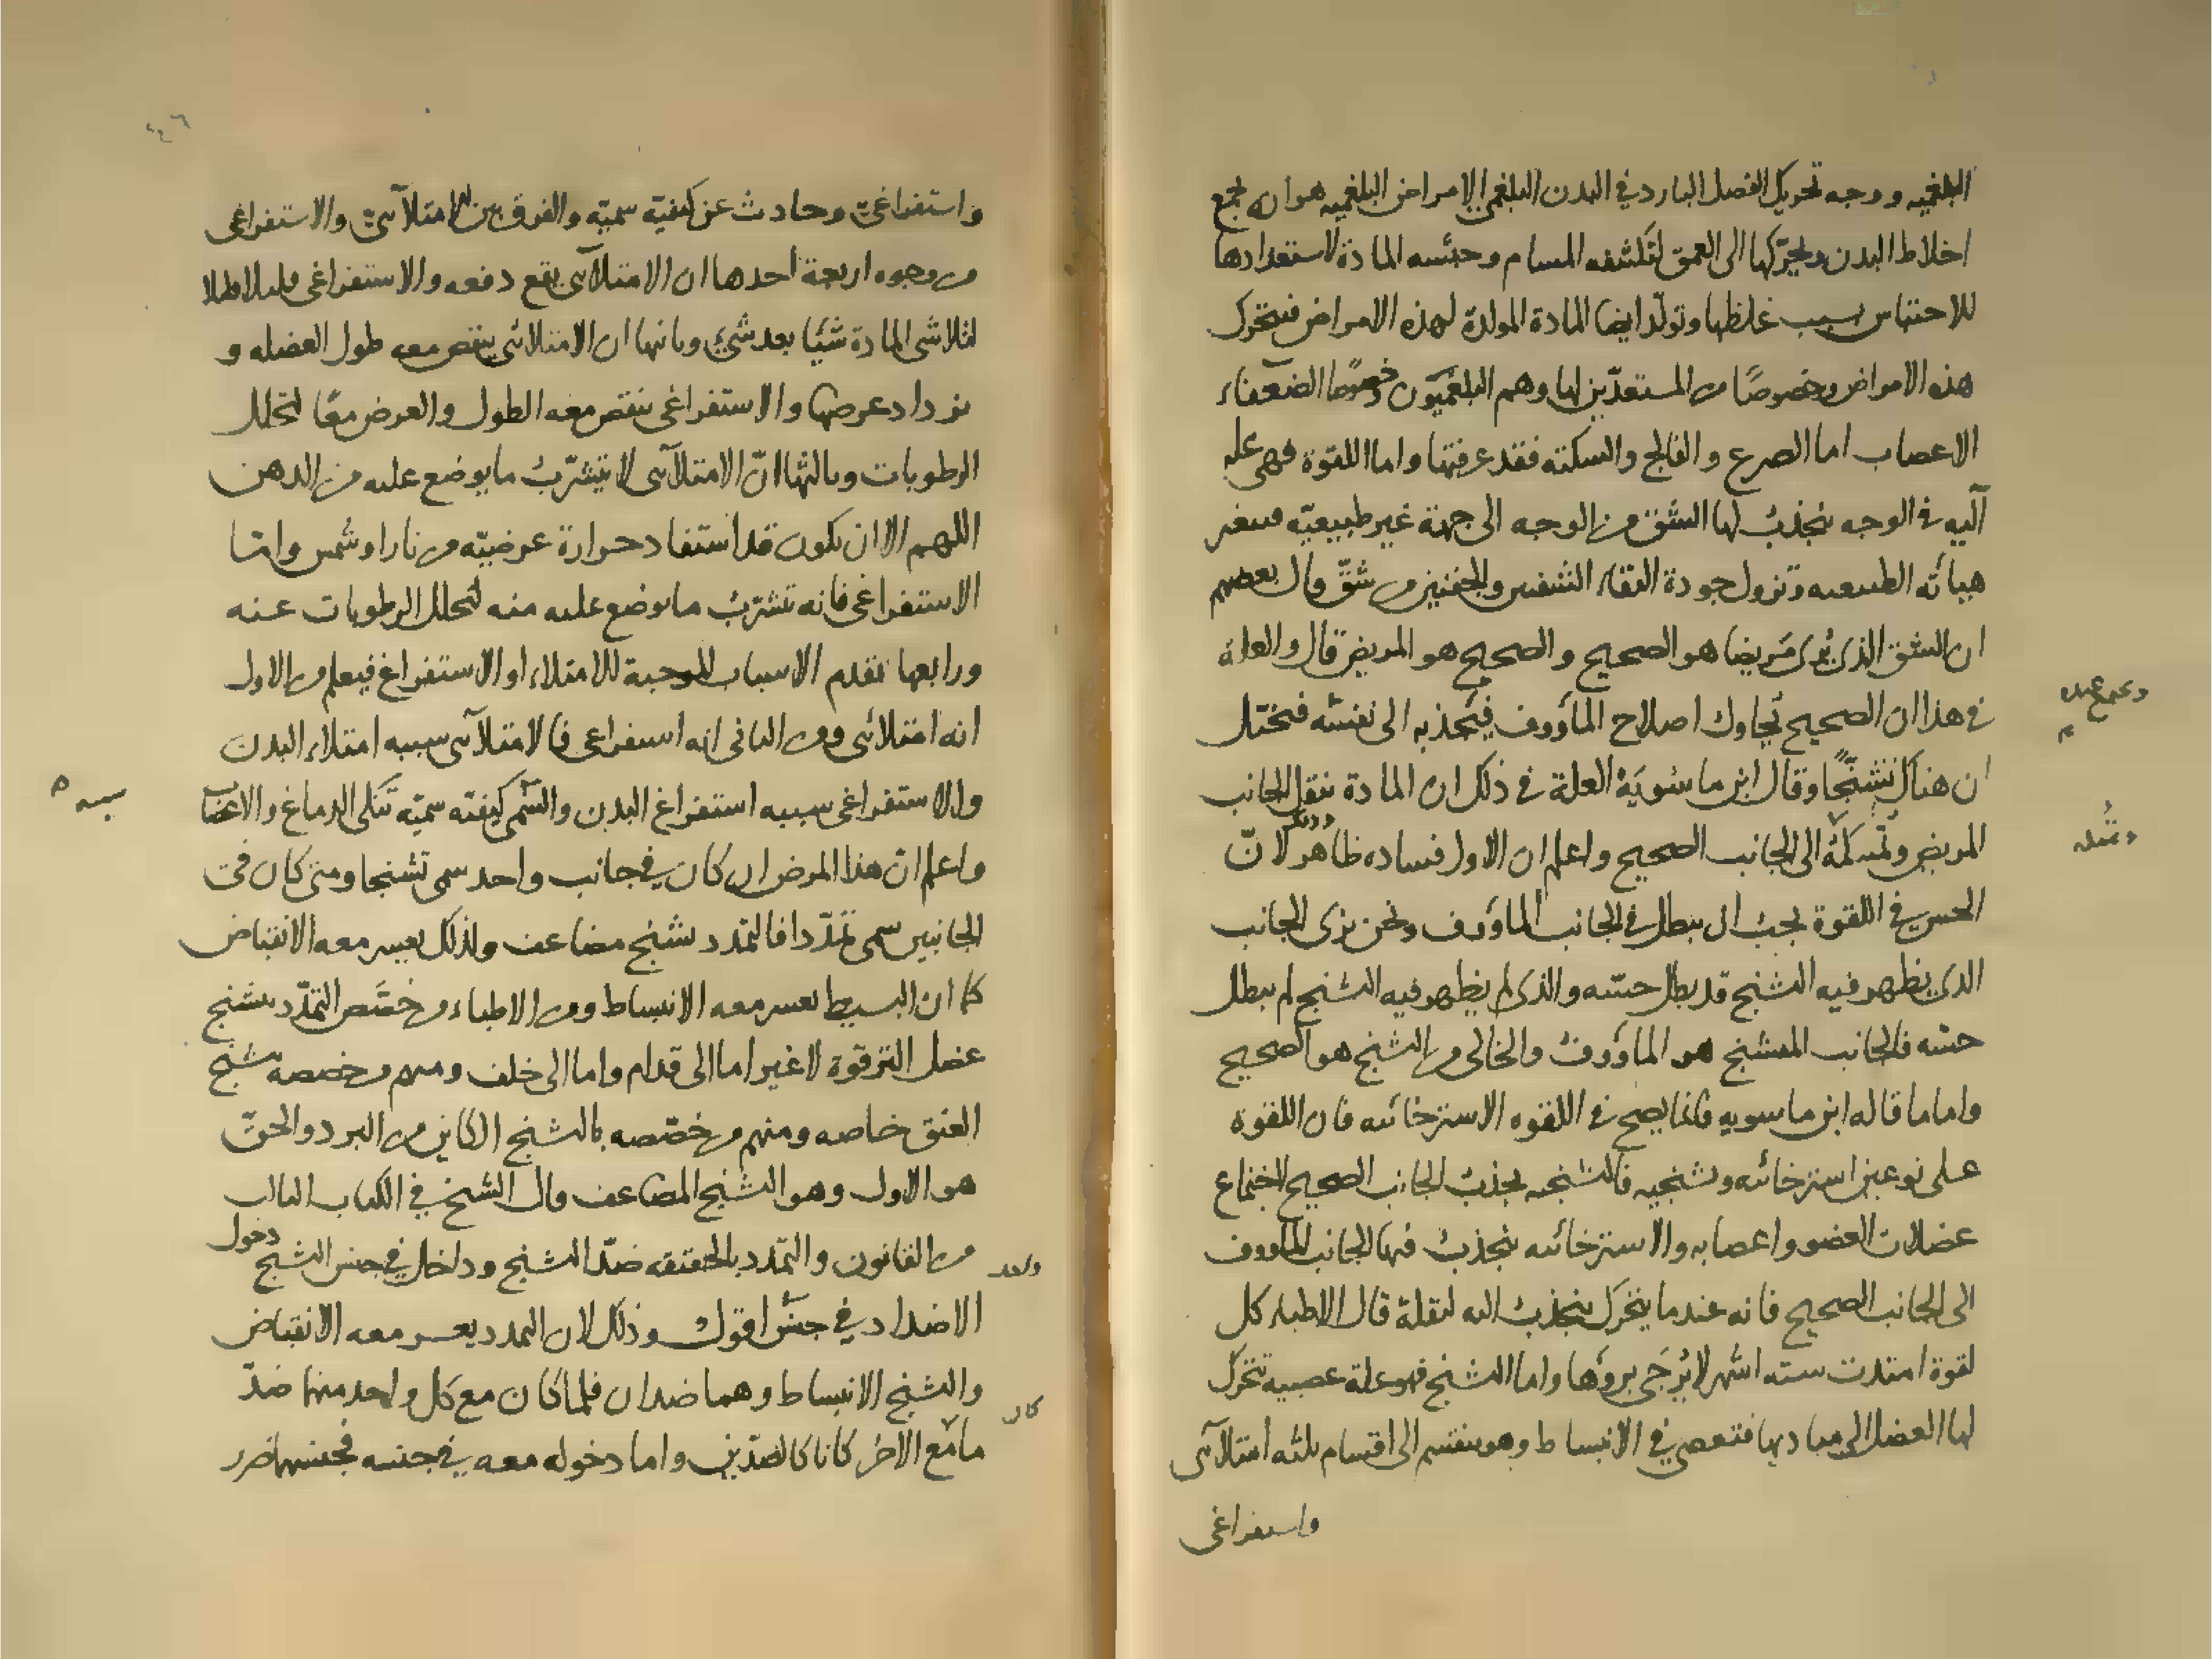 البلغميه ووجه تحريك الفصل البارد في البدن البلغمي الامراض البلغميه هو انه يجمع
اخلاط البدن ويحركها الى العمق لتكشفه المسام وحبسه المادة لاستعدادها
للاحتباس بسبب غلظها وتولد ايضا المادة المولدة لهذه الامراض فتتحرك
هذه الامراض وخصوصًا من المستعدين لها وهم البلغميون خصوصا الضعفاء
الاعصاب اما الصرع والفالج والسكته فقد عرفتها واما اللقوة فهى عله
آليه في الوجه ينجذب لها الشق من الوجه الى جهة غير طبيعيّه فتتغير
هيأته الطبيعيه وتزول جودة التقاء الشفتين والجفنين من شقّ وقال بعضهم
ان الشق الذى يُرى مَريضا هو الصحيح والصحيح هو المريض قال والعلة
في هذا ان الصحيح يحاول اصلاح المأووف فيجذبه الى نفسه فيختل
ان هناك تشنجًا وقال ابن ماسويَهْ العلة في ذلك ان المادة تثقل الجانب
المريض الى الجانب الصحيح واعلم ان الاول فساده ظاهر لانّ
الحس في اللقوة يجب ان يبطل في الجانب المأووف ونحن نرى الجانب
الذى يظهر فيه التشنج قد بطل حسّه والذى لم يظهر فيه التشنج لم يبطل
حسّه فالجانب المتشنج هو المأووف والخالى من التشنج هو الصحيح
واما ما قاله ابن ماسويه فانما يصح في اللقوه الاسترخائيه فان اللقوة
على نوعين استرخائيه وتشنجيه فالتشنجيه يجذب الجانب الصحيح لاجتماع
عضلات العضو واعصابه والاسترخائيه ينجذب فيها الجانب المأووف
الى الجانب الصحيح فانه عندما يتحرك ينجذب اليه لثقله قال الاطباء كل
لقوة امتدت سته اشهر لا يُرجَى بروها واما التشنج فهو علة عصبيه تتحرك
لها العضل الى مباديها فتعصي في الانبساط وهو ينقسم الى اقسام ثلثه امتلآئى
واستفراغى
واستفراغىّ وحادث عن كيفيّه سميّه والفرق بين الامتلآئىّ والاستفراغى
من وجوه اربعة احدها ان الامتلآئى يقع دفعه والاستفراغى قليلا قليلا
لتلاشى المادة شيًا بعد شئ وثانيها ان الامتلائى ينقص معه طول العضله و
يزداد عرضها والاستفراغى ينقص معه الطول والعرض معًا لتحلل
الرطوبات وثالثها انّ الامتلآئى لا يتشرّب ما يوضع عليه من الدهن
اللهم الا ان يكون قد استفاد حرارة عرضيّه من نار او شمس وامّا
الاستفراغى فانه تشرّب ما يوضع عليه منه لتحلل الرطوبات عنه
ورابعها تقدم الاسباب الموجبة للامتلاء او الاستفراغ فيعلم من الاول
انه امتلائى ومن الثانى انه استفراغى فالامتلآئى سببه امتلاء البدن
والاستفراغى سببه استفراغ البدن والسّمى كيفيته سميّه تنكى الدماغ والاعصاب
واعلم ان هذا المرض ان كان في جانب واحد سمى تشنجا ومتى كان في
الجانبين سمى تمدّدا فالتمدد تشنج مضاعف ولذلك يعسر معه الانقباض
كما ان البسيط يعسر معه الانبساط ومن الاطباء من خصّص التمدّد بتشنج
عضل الترقوة لا غير اما الى قدام واما الى خلف ومنهم من خصصه بتشنج
العنق خاصه ومنهم من خصّصه بالتشنج الكاين من البرد والحقّ
هو الاول وهو التشنج المضاعف وقال الشيخ في الكتاب الثالث
من القانون والتمدد بالحقيقه ضدّ التشنج وداخل في جنس التشنج دخول
الاضداد في جنس اقول وذلك لان التمدد يعسر معه الانقباض
والتشنج الانبساط وهما ضدان فلما كان مع كل واحد منهما ضدّ
ما مع الآخر كانا كالضدّين واما دخوله معه في جنسه فجنسهما ضرر